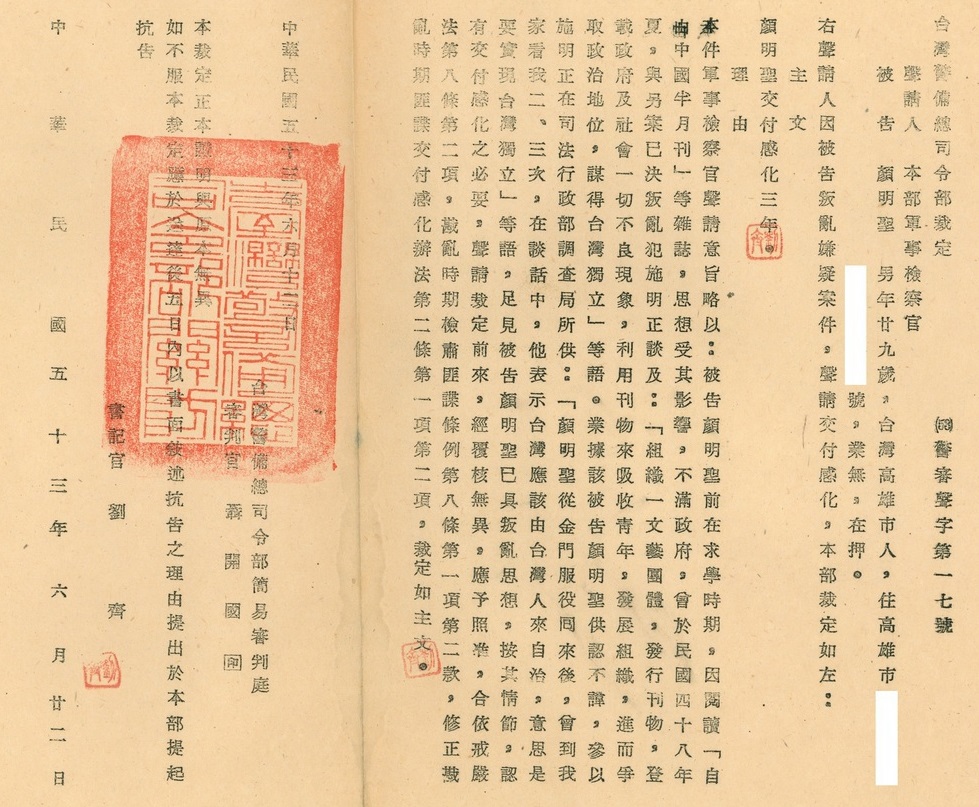 台灣警備總司令部裁定
(53)警審聲字第一七號
聲請人　本部軍事檢察官
被告　顏明聖　男年廿九歲，台灣高雄市人，住高雄市
號，業無，在押。
右聲請人因被告叛亂嫌疑案件，聲請交付感化，本部裁定如左：
主文
顏明聖交付感化三年。
理由
本件軍事檢察官聲請意旨略以：被告顏明聖前在求學時期，因閱讀「自
由中國半月刊」等雜誌，思想受其影響，不滿政府，曾於民國四十八年
夏，與另案已決叛亂犯施明正談及：「組織一文藝團體，發行刊物，登
載政府及社會一切不良現象，利用刊物來吸收青年，發展組織，進而爭
取政治地位，謀得台灣獨立」等語。業據該被告顏明聖供認不諱，參以
施明正在司法行政部調查局所供：「顏明聖從金門服役回來後，曾到我
家看我二、三次，在談話中，他表示台灣應該由台灣人來自治，意思是
要實現台灣獨立」等語，足見被告顏明聖已具叛亂思想，按其情節，認
有交付感化之必要，聲請裁定前來，經覆核無異，應予照准，合依戒嚴
法第八條第二項，戡亂時期檢肅匪諜條例第八條第一項第二款，修正戡
亂時期匪諜交付感化辦法第二條第一項第二項，裁定如主文。
中華民國五十三年六月十二日
台灣警備總司令部簡易審判庭
審判官　聶開國　印
本裁定正本證明與原本無異
如不服本裁定應於送達後五日內以書面敘述抗告之理由提出於本部提起
抗告
書記官　劉齊
中華民國五十三年六月廿二日